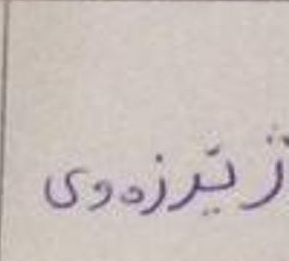 ژێرزەوی